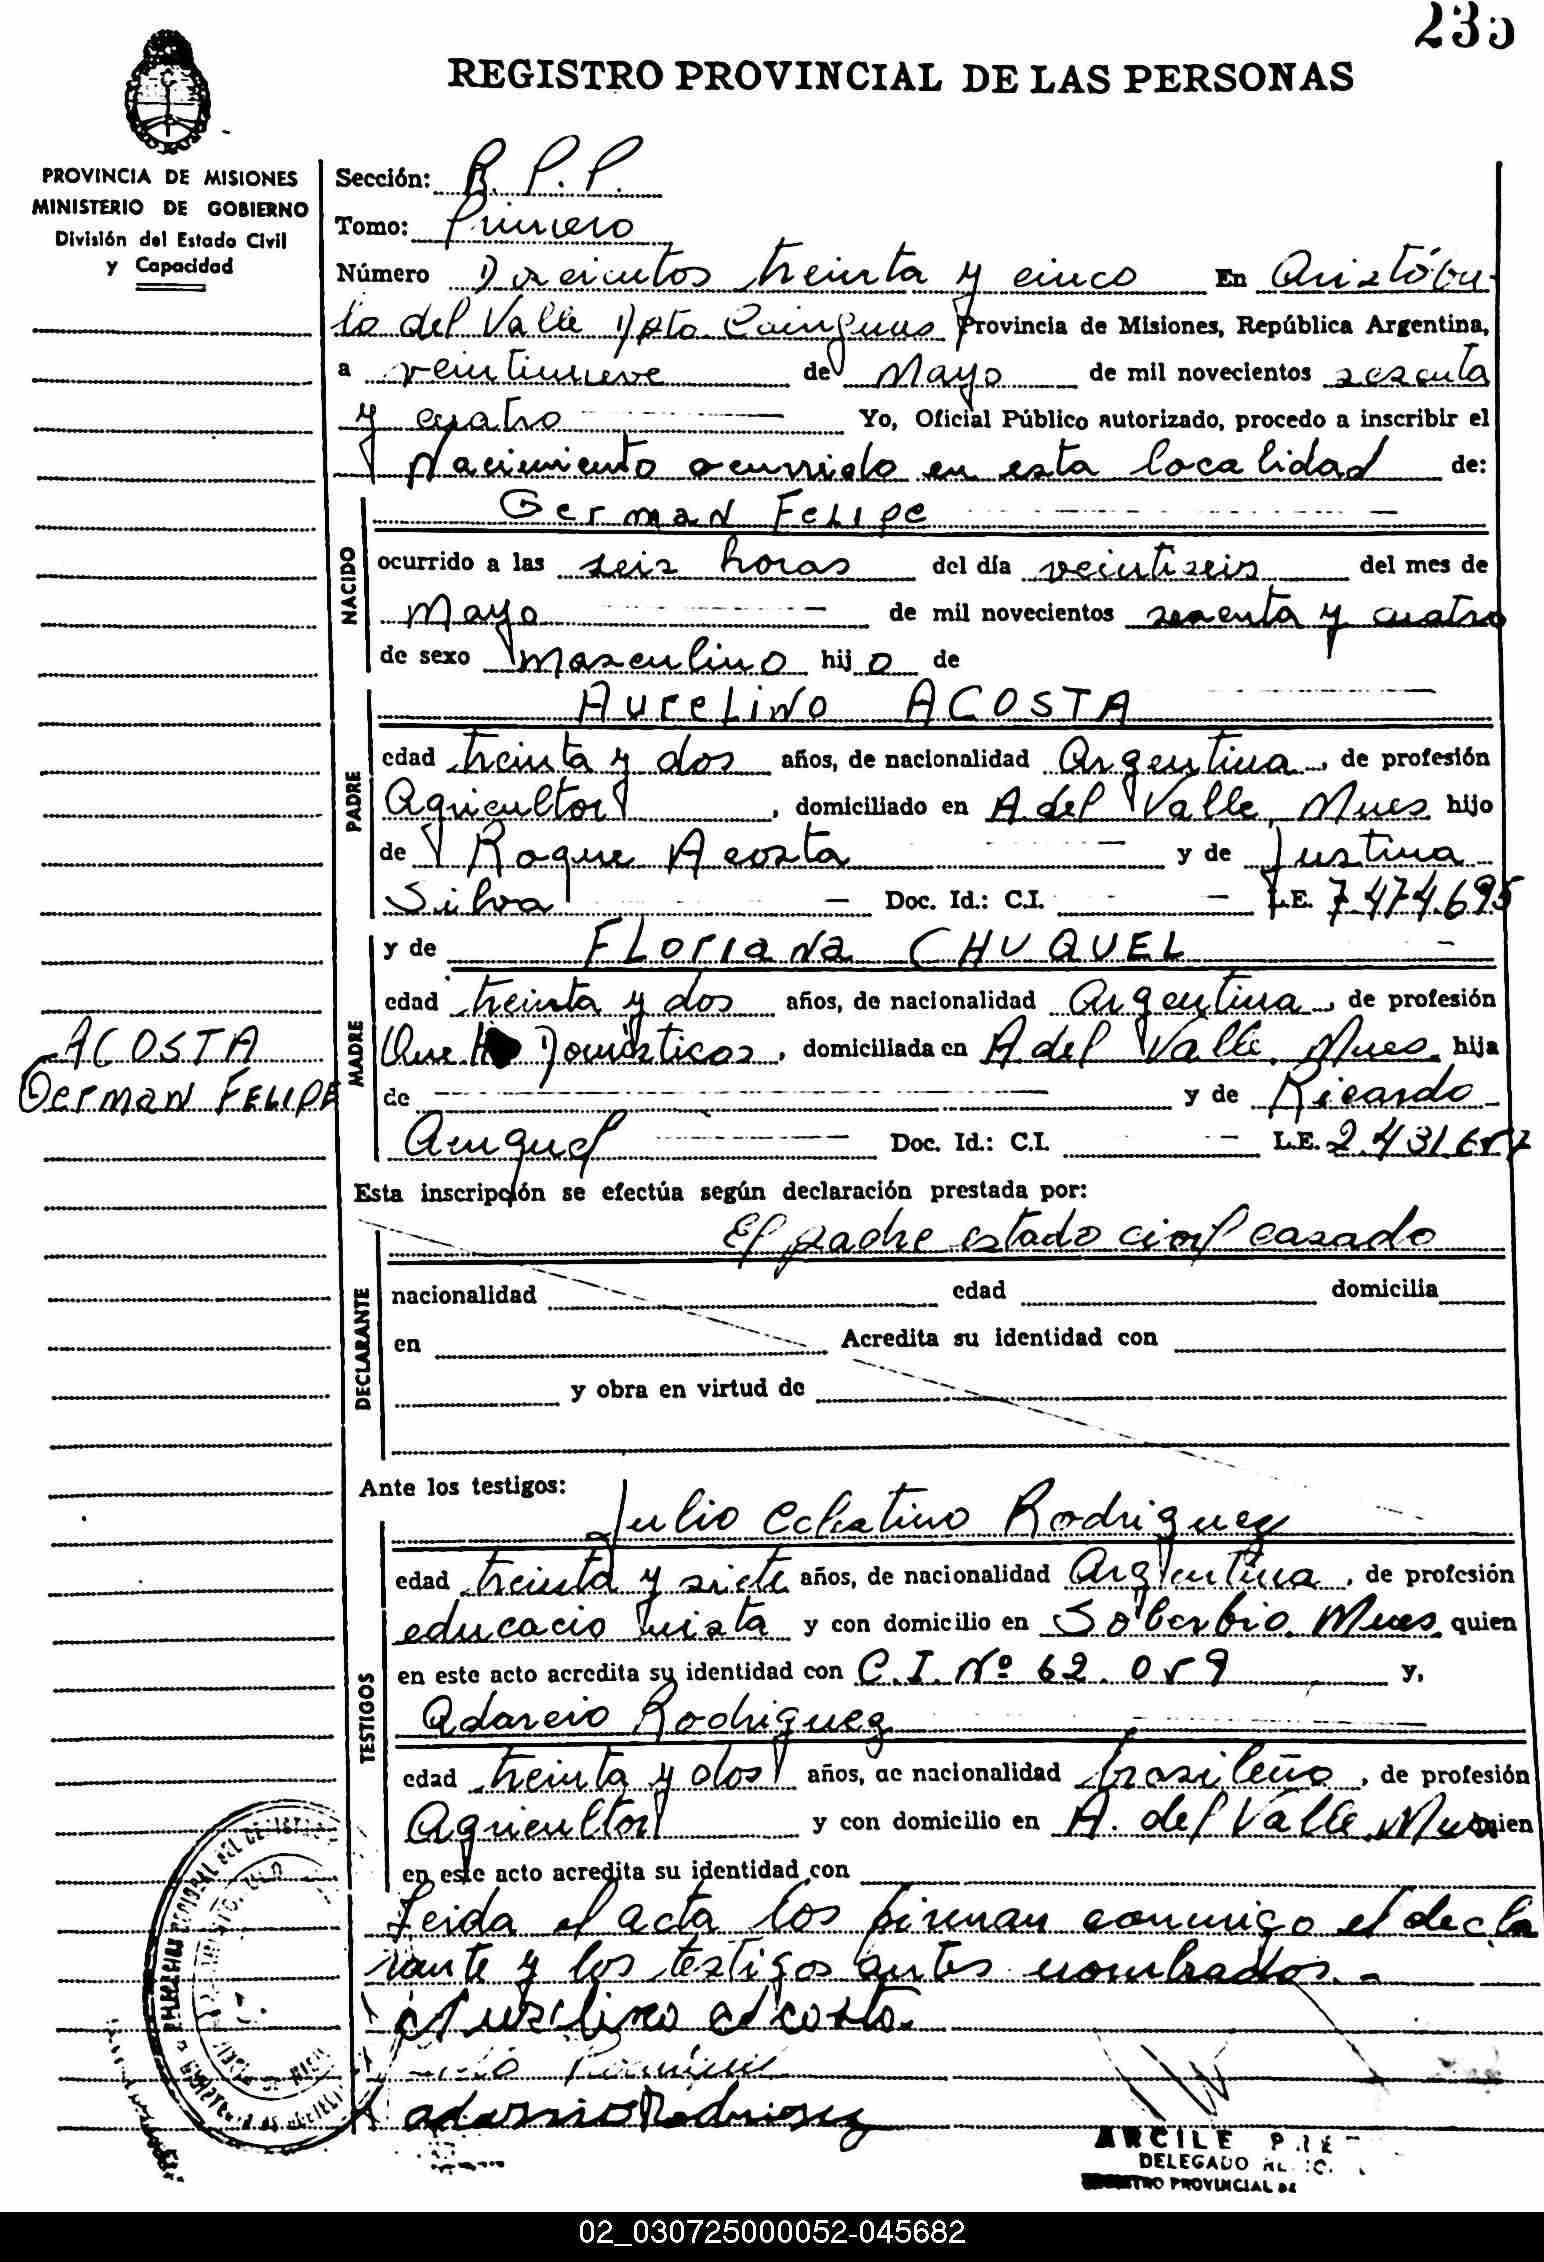 235
REGISTRO PROVINCIAL DE LAS PERSONAS
PROVINCIA DE MISIONES
MINISTERIO DE GOBIERNO
División del Estado Civil
y Capacidad
Sección: R. P. P.
Tomo: Primero
Número Docientos treinta y cinco En Aristóbu-
lo del Valle Dpto. Cainguas Provincia de Misiones, República Argentina,
a veintinueve de Mayo de mil novecientos sesenta
y cuatro Yo, Oficial Público autorizado, procedo a inscribir el
Nacimiento ocurrido en esta localidad de:
NACIDO
German Felipe
ocurrido a las seis horas del día veintiseis del mes de
Mayo de mil novecientos sesenta y cuatro
de sexo masculino hijo de
PADRE
Aurelino ACOSTA
edad treinta y dos años, de nacionalidad Argentina, de profesión
Agricultor, domiciliado en A. del Valle, Mnes. hijo
de Roque Acosta y de Justina
Silva Doc. Id.: C.I. L.E. 7.474.695
MADRE
y de Floriana CHUQUEL
edad treinta y dos años, de nacionalidad Argentina, de profesión
Domésticos, domiciliada en A del Valle, Mnes. hija
de y de Ricardo
Doc. Id.: C.I. L.E.
ACOSTA
German FELIPE
Esta inscripción se efectúa según declaración prestada por:
DECLARANTE
El padre estado civil casado
nacionalidad edad domicilia
en Acredita su identidad con
y obra en virtud de
Ante los testigos:
TESTIGOS
Julio Rodriguez
edad treinta y siete años, de nacionalidad Argentina, de profesión
educacionista y con domicilio en Soberbio Mnes. quien
en este acto acredita su identidad con C.I. Nº 62.059 y,
Adarcio Rodriguez
edad treinta y dos años, de nacionalidad brasileño, de profesión
Agricultor y con domicilio en A. del Valle, Mnes quien
en este acto acredita su identidad con
Leida el acta los firman conmigo el decla
rante y los testigos antes nombrados.-
Aurelino Acosta
Adarcio Rodriguez
ARCILE
DELEGADO
REGISTRO PROVINCIAL DE
02_030725000052-045682